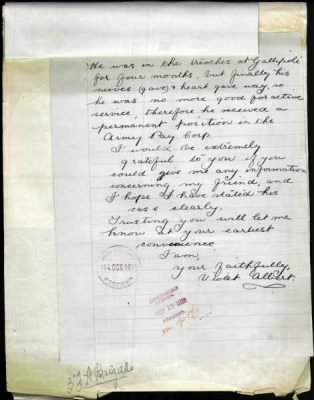 He was in the trenches at Gallipoli
for four months, but finally his
nerves (gave) & heart gave way, so
he was no more good for active
service, therefore he received a
permanent position in the
Army Pay Corp.
I would be extremely
grateful to you if you
could give me any information
concerning my friend, and
I hope I have stated his
case clearly.
Trusting you will let me
know at your earliest
convenience
I am,
your faithfully,
Violet Albert.